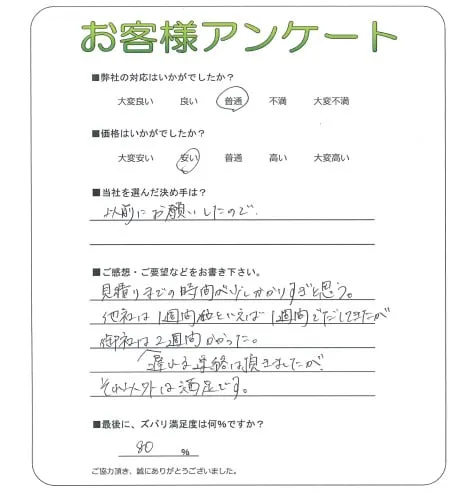 お客様アンケート
■弊社の対応はいかがでしたか？
大変良い 良い 普通 不満 大変不満
■価格はいかがでしたか？
大変安い 安い 普通 高い 大変高い
■当社を選んだ決め手は？
以前にお願いしたので.
■ご感想・ご要望などをお書き下さい。
見積りまでの時間が少しかかりすぎと思う。
他社は1週間位といえば1週間でだしてきたが
御社は2週間かかった。
遅れる連絡は頂きましたが
それ以外は満足です。
■最後に、ズバリ満足度は何%ですか？
80 %
ご協力頂き、誠にありがとうございました。